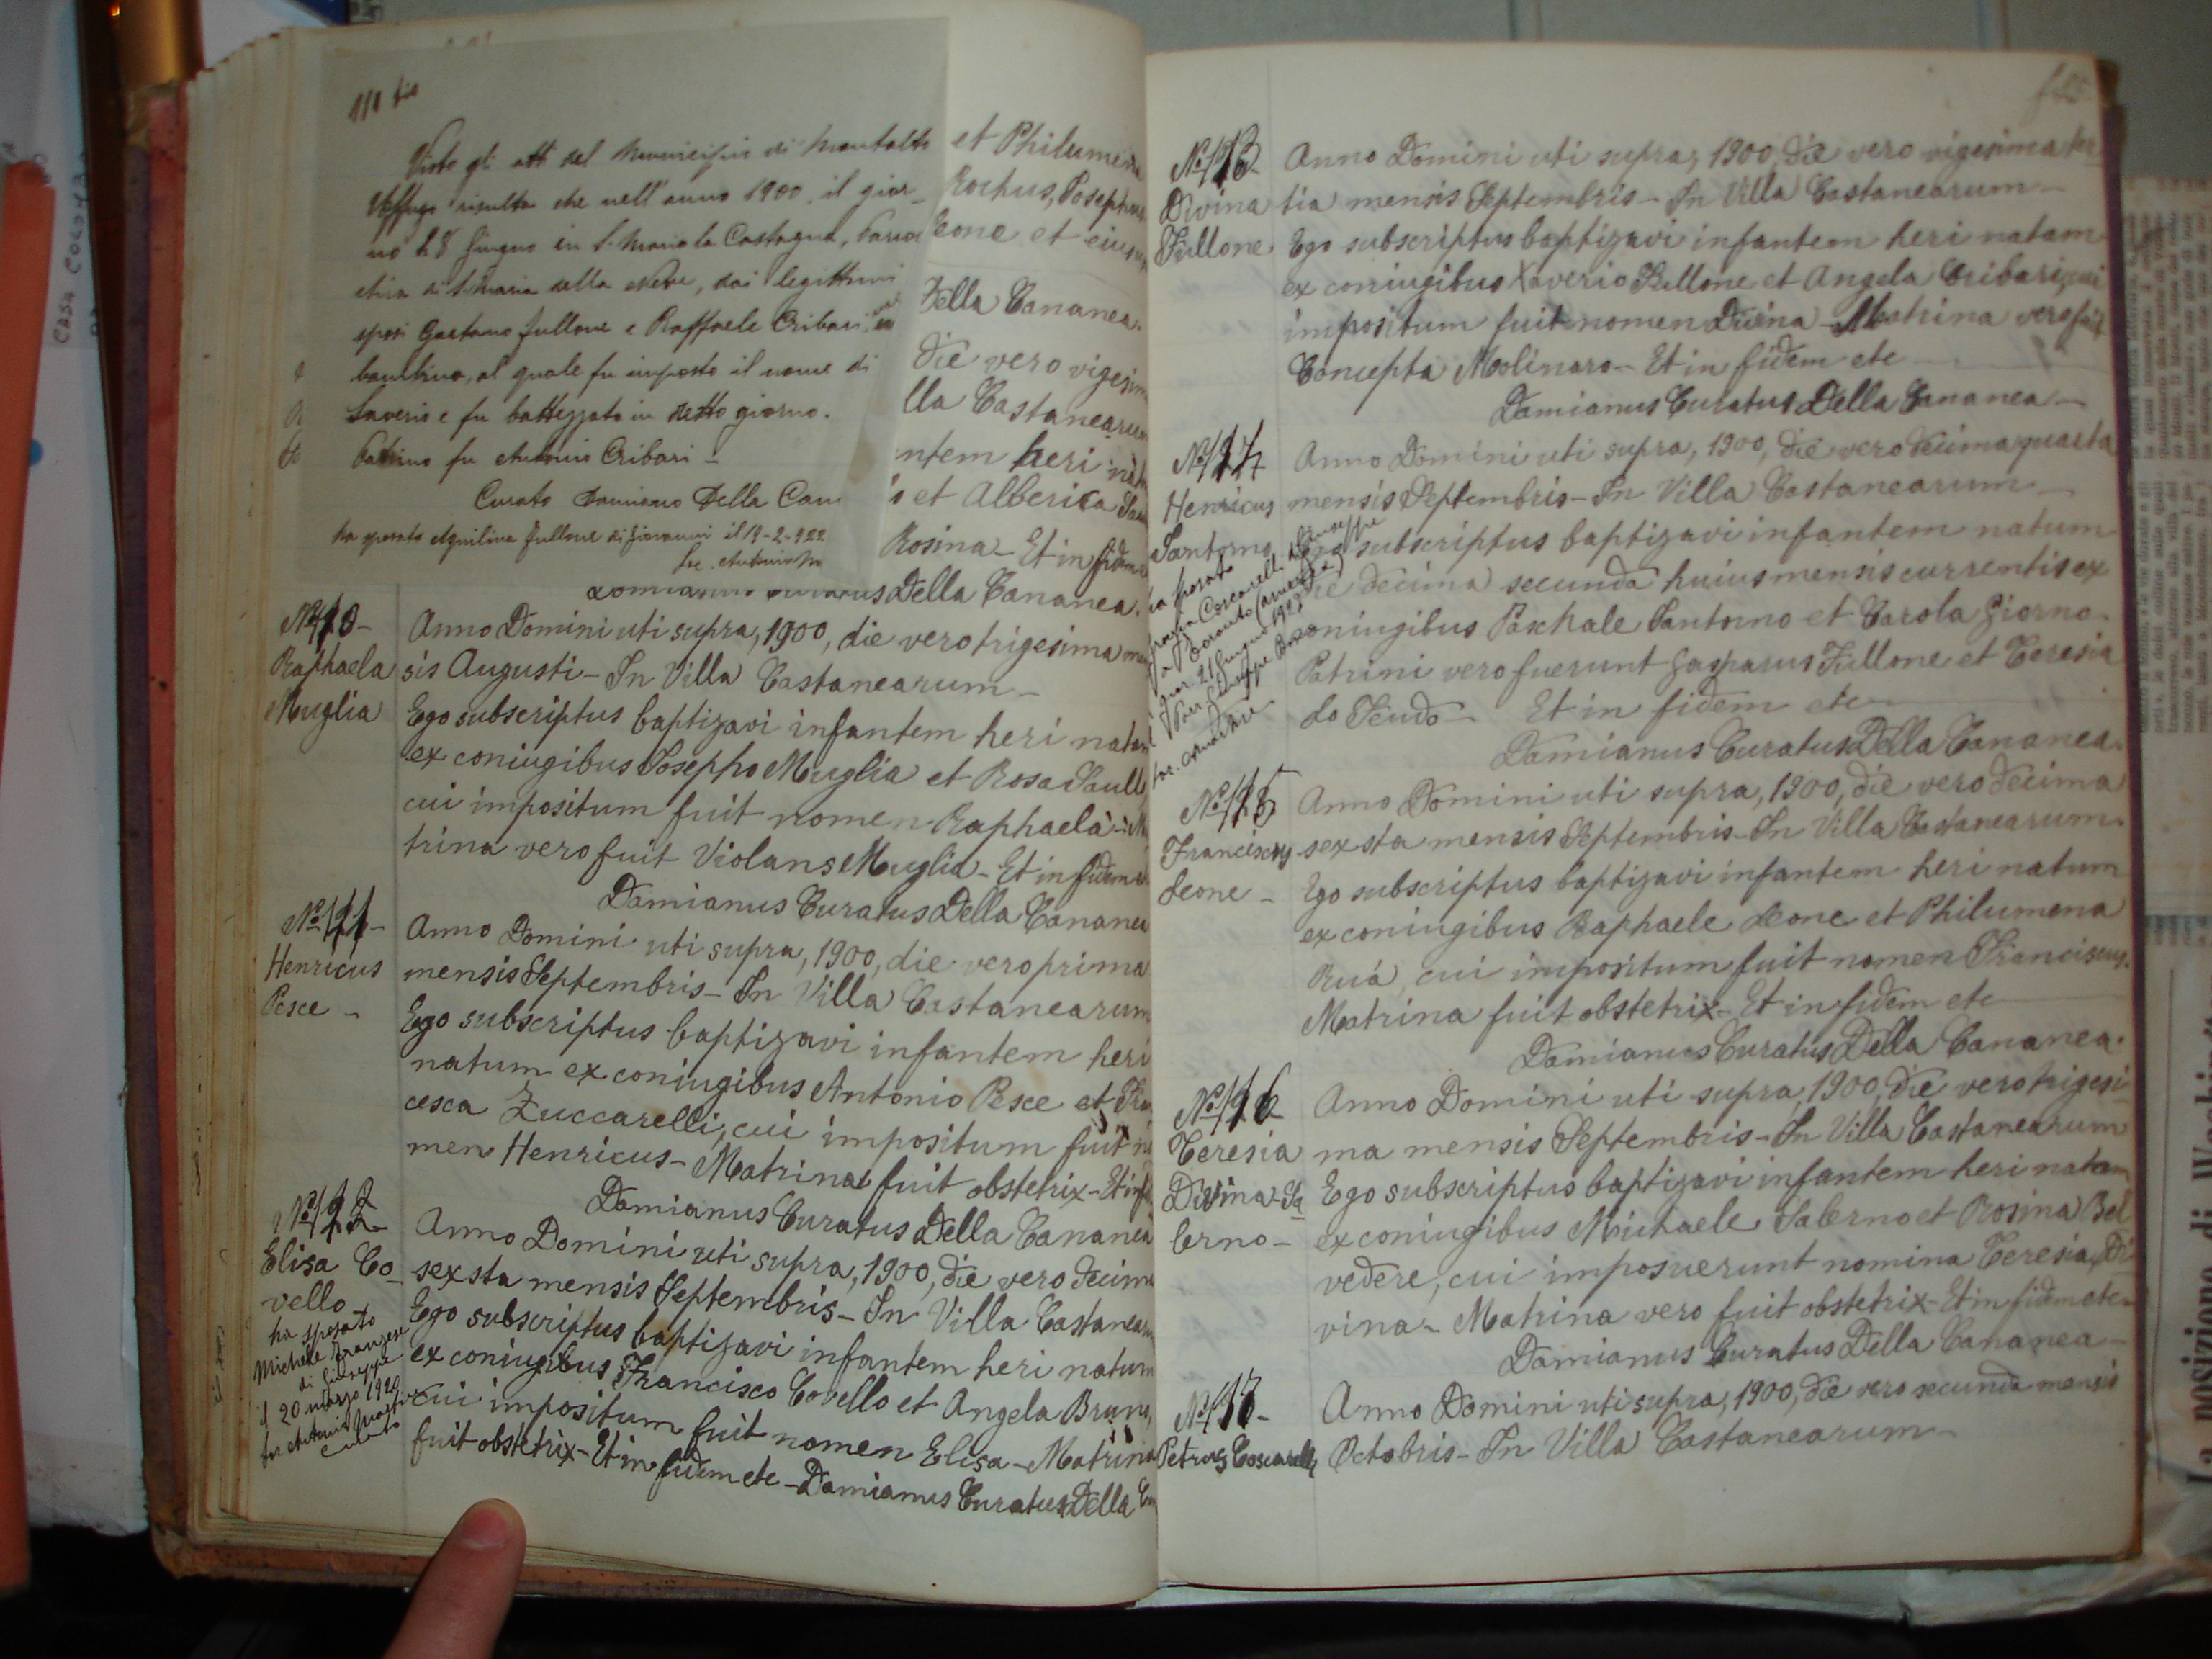 111 bis
Visto gli atti del Municipio di Montalto
Uffugo risulta che nell'anno 1900, il gior_
no 28 Giugno in S. Maria la Castagna, Parroc
chia di S. Maria della Neve, dai legittimi
sposi Gaetano Fullone e Raffaele Cribari, un
bambino, al quale fu imposto il nome di
Saverio e fu battezzato in detto giorno.
Patrino fu Antonio Cribari _
Curato Damiano Della Can
ha sposato Aquilina Fullone di Giovanni il 19-2-922
Sac. Antonio M
et Philumena
Rochus, Joseph
Leone et eius
Della Cananea.
die vero vigesim
lla Castanearum
ntem heri nat
o et Alberica
Rosina - Et in fidem
Damianus Curatus Della Cananea.
Raphaela
Muglia
Anno Domini uti supra, 1900, die vero trigesima men
sis Augusti - In Villa Castanearum -
Ego subscriptus baptizavi infantem heri natam
ex coniugibus Josepho Muglia et Rosa Saulle
cui impositum fuit nomen Raphaela - Ma
trina vero fuit Violans Muglia - Et in fidem
Damianus Curatus Della Cananea
Henricus
Pesce -
Anno Domini uti supra, 1900, die vero prima
mensis Septembris - In Villa Castanearum
Ego subscriptus baptizavi infantem heri
natum ex coniugibus Antonio Pesce et Fran
cesca Zuccarelli, cui impositum fuit no
men Henricus - Matrina fuit obstetrix - Et in f
Damianus Curatus Della Cananea
Elisa Co_
vello
ha sposato
Michele Franzese
di Giuseppe
il 20 marzo 1920
curato
Anno Domini uti supra, 1900, die vero decima
sexsta mensis Septembris - In Villa Castanear
Ego subscriptus baptizavi infantem heri natam
ex coniugibus Francisco Covello et Angela Bruno,
cui impositum fuit nomen Elisa - Matrina
fuit obstetrix - Et in fidem etc - Damianus Curatus Della Can
Divina
Fullone
Anno Domini uti supra, 1900, die vero vigesima ter
tia mensis Septembris - In Villa Castanearum -
Ego subscriptus baptizavi infantem heri natam
ex coniugibus Xaverio Fullone et Angela Cribari, cui
impositum fuit nomen Divina - Matrina vero fuit
Concepta Molinaro - Et in fidem etc
Damianus Curatus Della Cananea -
Henricus
Santorno
ha sposato
Coscarelli di Giuseppe
21 Giugno
Anno Domini uti supra, 1900, die vero decima quarta
mensis Septembris - In Villa Castanearum -
Ego subscriptus baptizavi infantem natum
die decima secunda huius mensis currentis ex
coniugibus Paschale Santorno et Carola Giorno -
Patrini vero fuerunt Gasparus Fullone et Teresia
Lo Feudo - Et in fidem etc -
Damianus Curatus Della Cananea.
Franciscus
Leone -
Anno Domini uti supra, 1900, die vero decima
sexsta mensis Septembris - In Villa Castanearum.
Ego subscriptus baptizavi infantem heri natum
ex coniugibus Raphaele Leone et Philumena
Ruá, cui impositum fuit nomen Franciscus.
Matrina fuit obstetrix - Et in fidem etc
Damianus Curatus Della Cananea.
Teresia
Divina Sa
lerno -
Anno Domini uti supra, 1900, die vero trigesi
ma mensis Septembris - In Villa Castanearum
Ego subscriptus baptizavi infantem heri natam
ex coniugibus Michaele Salerno et Rosina Bel
vedere, cui imposuerunt nomina Teresia, Di
vina - Matrina vero fuit obstetrix - Et in fidem etc -
Damianus Curatus Della Cananea -
Petrus Coscarelli
Anno Domini uti supra, 1900, die vero secunda mensis
Octobris - In Villa Castanearum -
CASA COLO
La posizione di